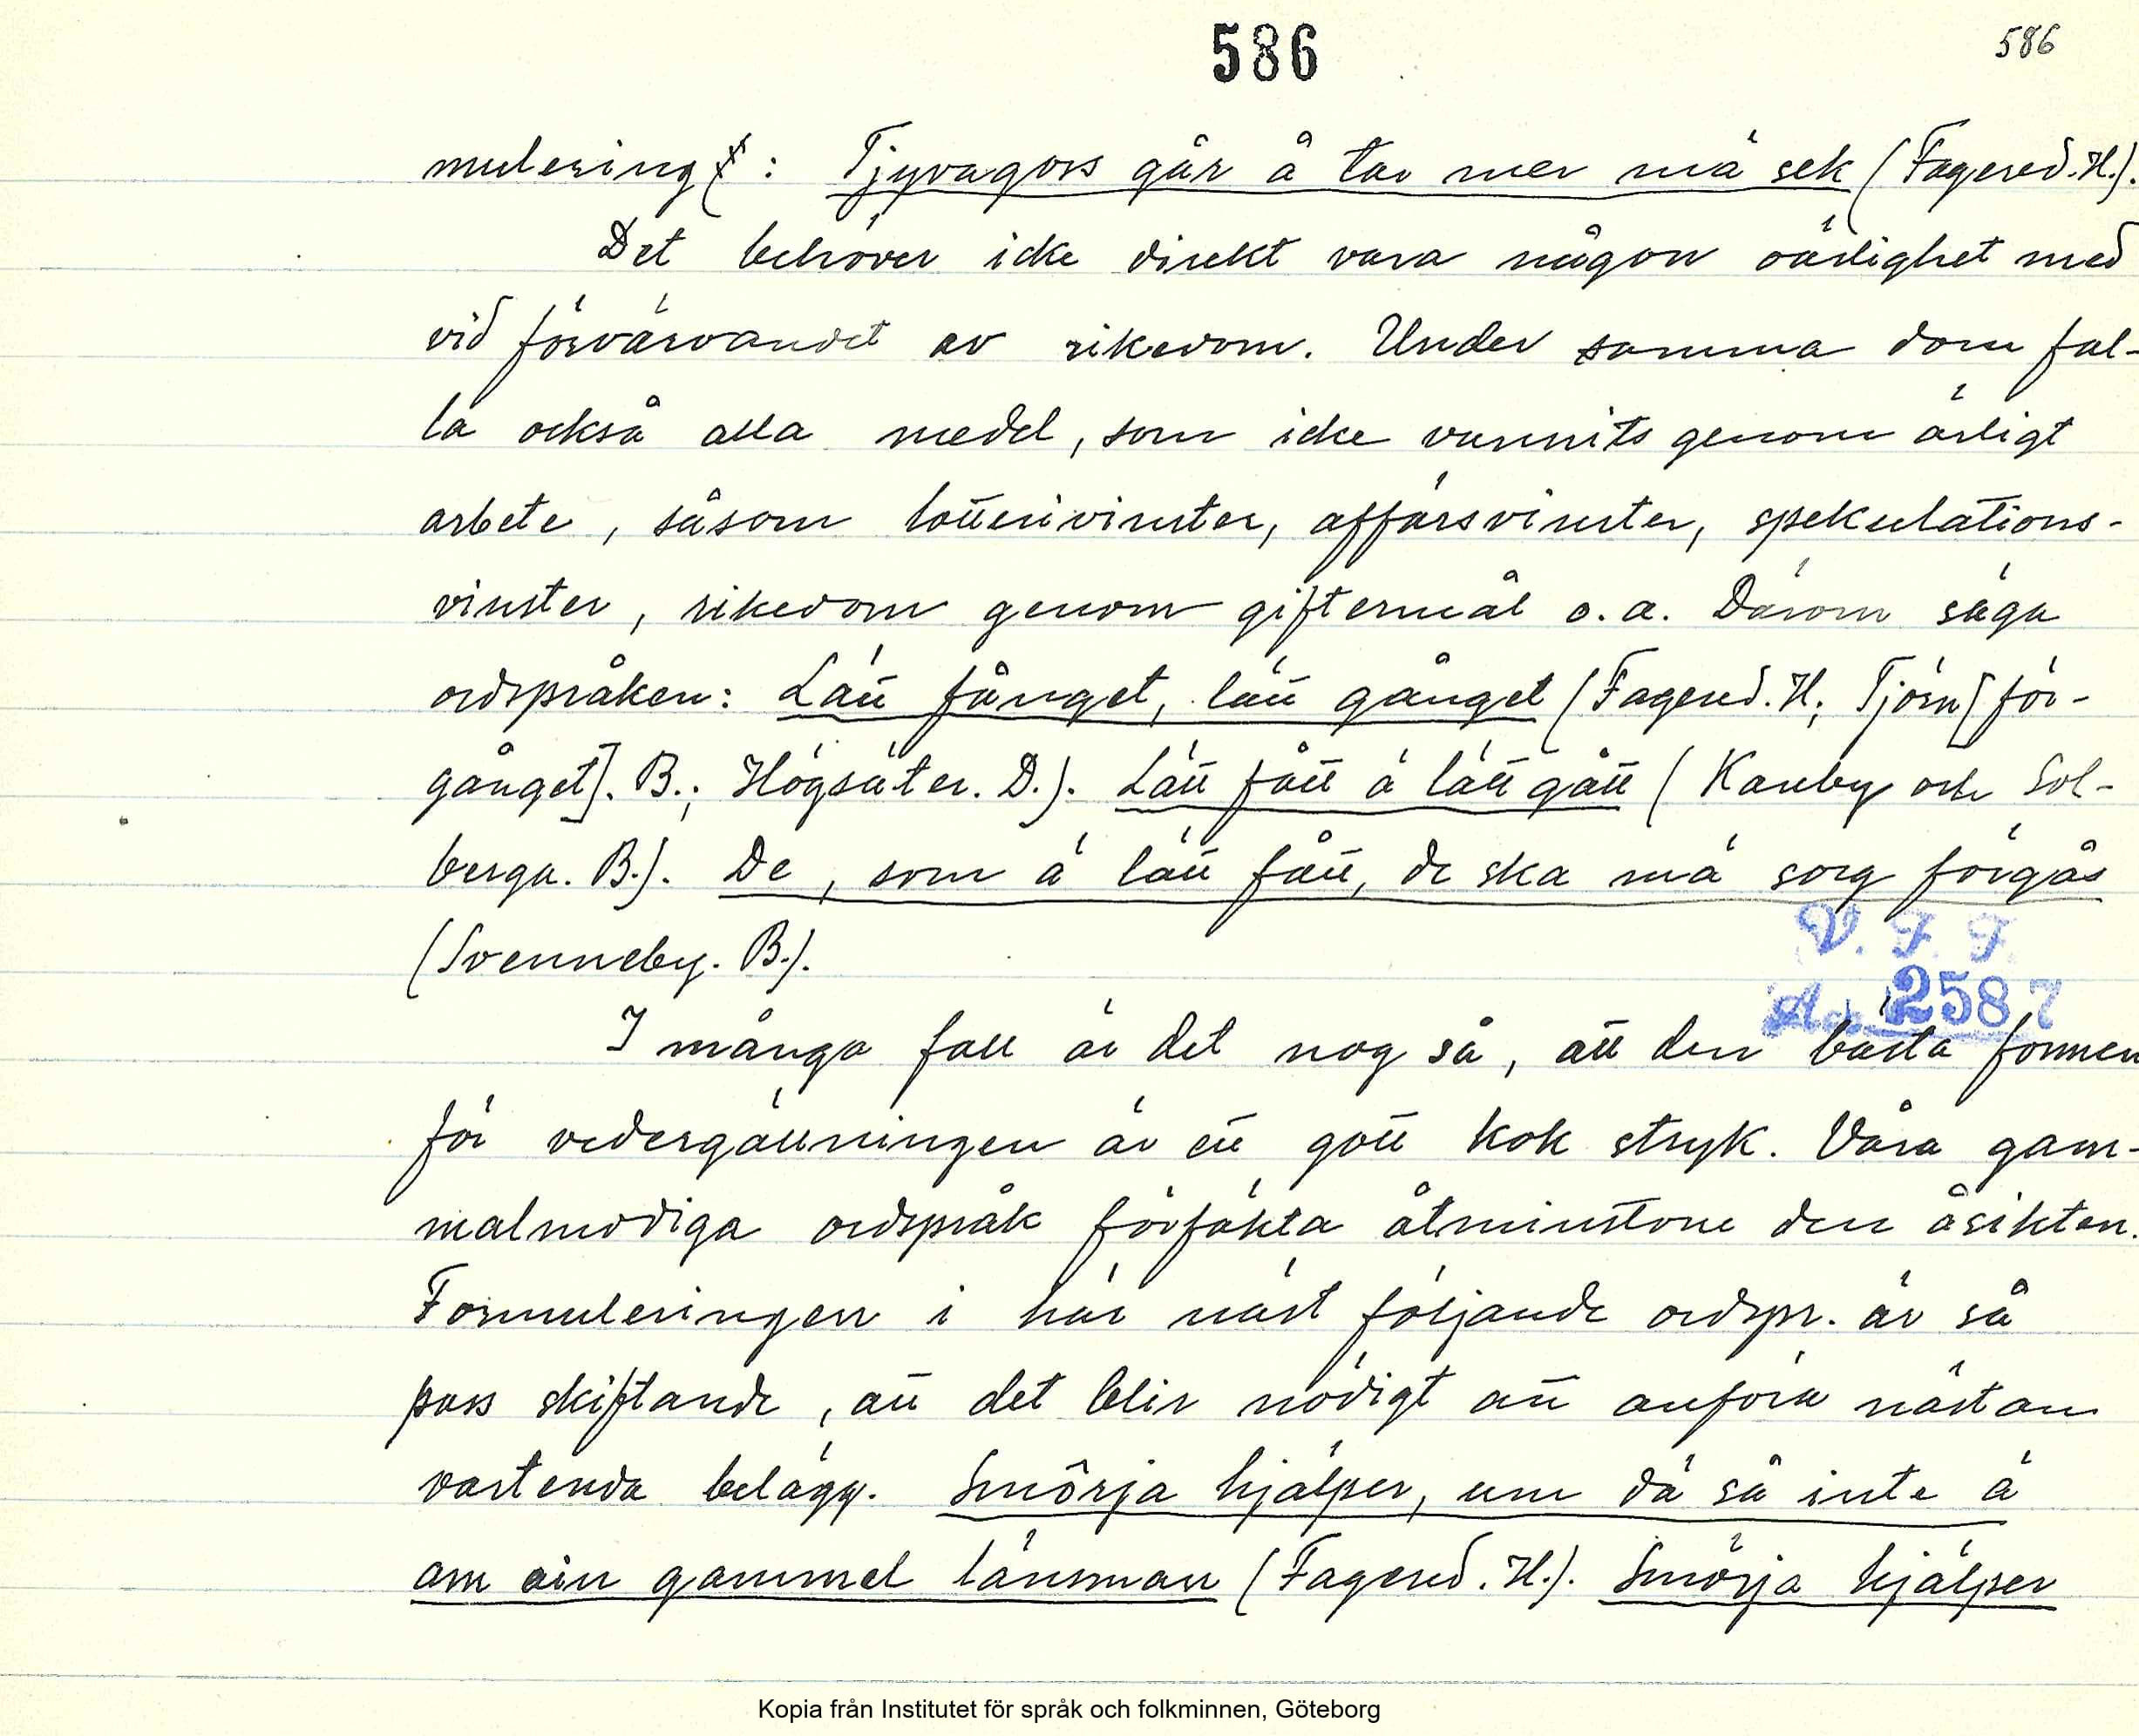 586
586
mulering: Tjyvagors går å tar mer mä sek (Fagered. H.).
Det behöver icke direkt vara någon oärlighet med
vid förvärvandet av rikedom. Under samma dom fal-
la också alla medel, som icke vunnits genom ärligt
arbete, såsom lotterivinster, affärsvinster, spekulations-
vinster, rikedom genom giftermål o.a. Därom säga
ordspråken: Lätt fånget, lätt gånget (Fagered. H.; Tjörn [för-
gånget]. B.; Högsäter. D.). Lätt fått å lätt gått (Kareby och Sol-
berga. B.). De, som ä lätt fått, de ska mä sorg förgås
(Svenneby. B.).
V. F. F.
Acc 2587
I många fall är det nog så, att den bästa formen
för vedergällningen är ett gott kok stryk. Våra gam-
malmodiga ordspråk förfäkta åtminstone den åsikten.
Formuleringen i här näst följande ordspr. är så
pass skiftande, att det blir nödigt att anföra nästan
vartenda belägg. Smörja hjälper, um dä så inte ä
am ain gammel länsman (Fagered. H.). Smörja hjälper
Kopia från Institutet för språk och folkminnen, Göteborg